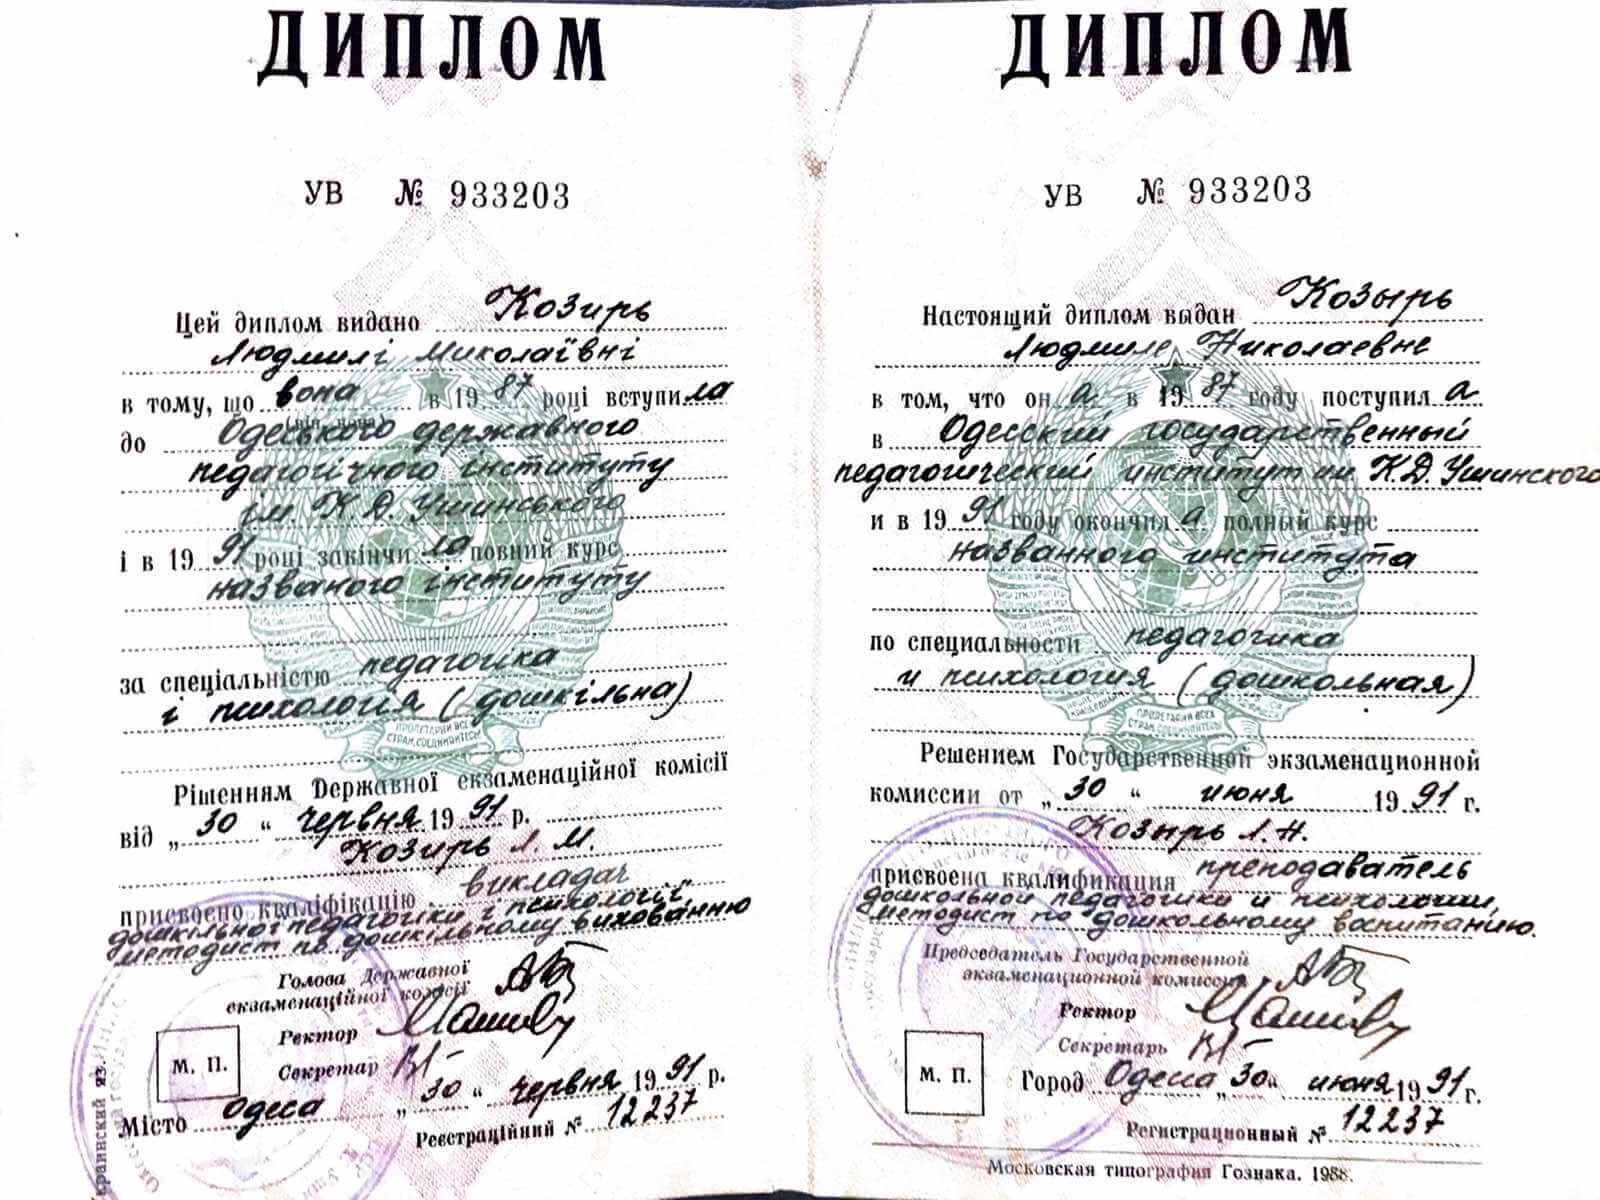 ДИПЛОМ
УВ № 933203
Цей диплом видано Козирь
Людмилі Миколаївні
в тому, що вона в 1987 році вступила
до Одеського державного
педагогічного інституту
ім. К. Д. Ушинського
і в 1991 році закінчила повний курс
названого інституту
за спеціальністю педагогіка
і психологія (дошкільна)
Рішенням Державної екзаменаційної комісії
від „30“ червня 1991 р.
Козирь Л. М.
присвоєно кваліфікацію викладач
дошкільної педагогіки і психології,
методист по дошкільному вихованню
Голова Державної
екзаменаційної комісії
Ректор
Секретар
М. П.
„30“ червня 1991 р.
Місто Одеса
Реєстраційний № 12237
ДИПЛОМ
УВ № 933203
Настоящий диплом выдан Козырь
Людмиле Николаевне
в том, что она в 1987 году поступила
в Одесский государственный
педагогический институт им. К.Д. Ушинского
и в 1991 году окончила полный курс
названного института
по специальности педагогика
и психология (дошкольная)
Решением Государственной экзаменационной
комиссии от „30“ июня 1991 г.
Козырь Л. Н.
присвоена квалификация преподаватель
дошкольной педагогики и психологии,
методист по дошкольному воспитанию.
Председатель Государственной
экзаменационной комиссии
Ректор
Секретарь
М. П.
Город Одесса „30“ июня 1991 г.
Регистрационный № 12237
Московская типография Гознака. 1988.
ПРОЛЕТАРИИ ВСЕХ
СТРАН, СОЕДИНЯЙТЕСЬ
ПРОЛЕТАРИИ ВСЕХ
СТРАН, СОЕДИНЯЙТЕСЬ